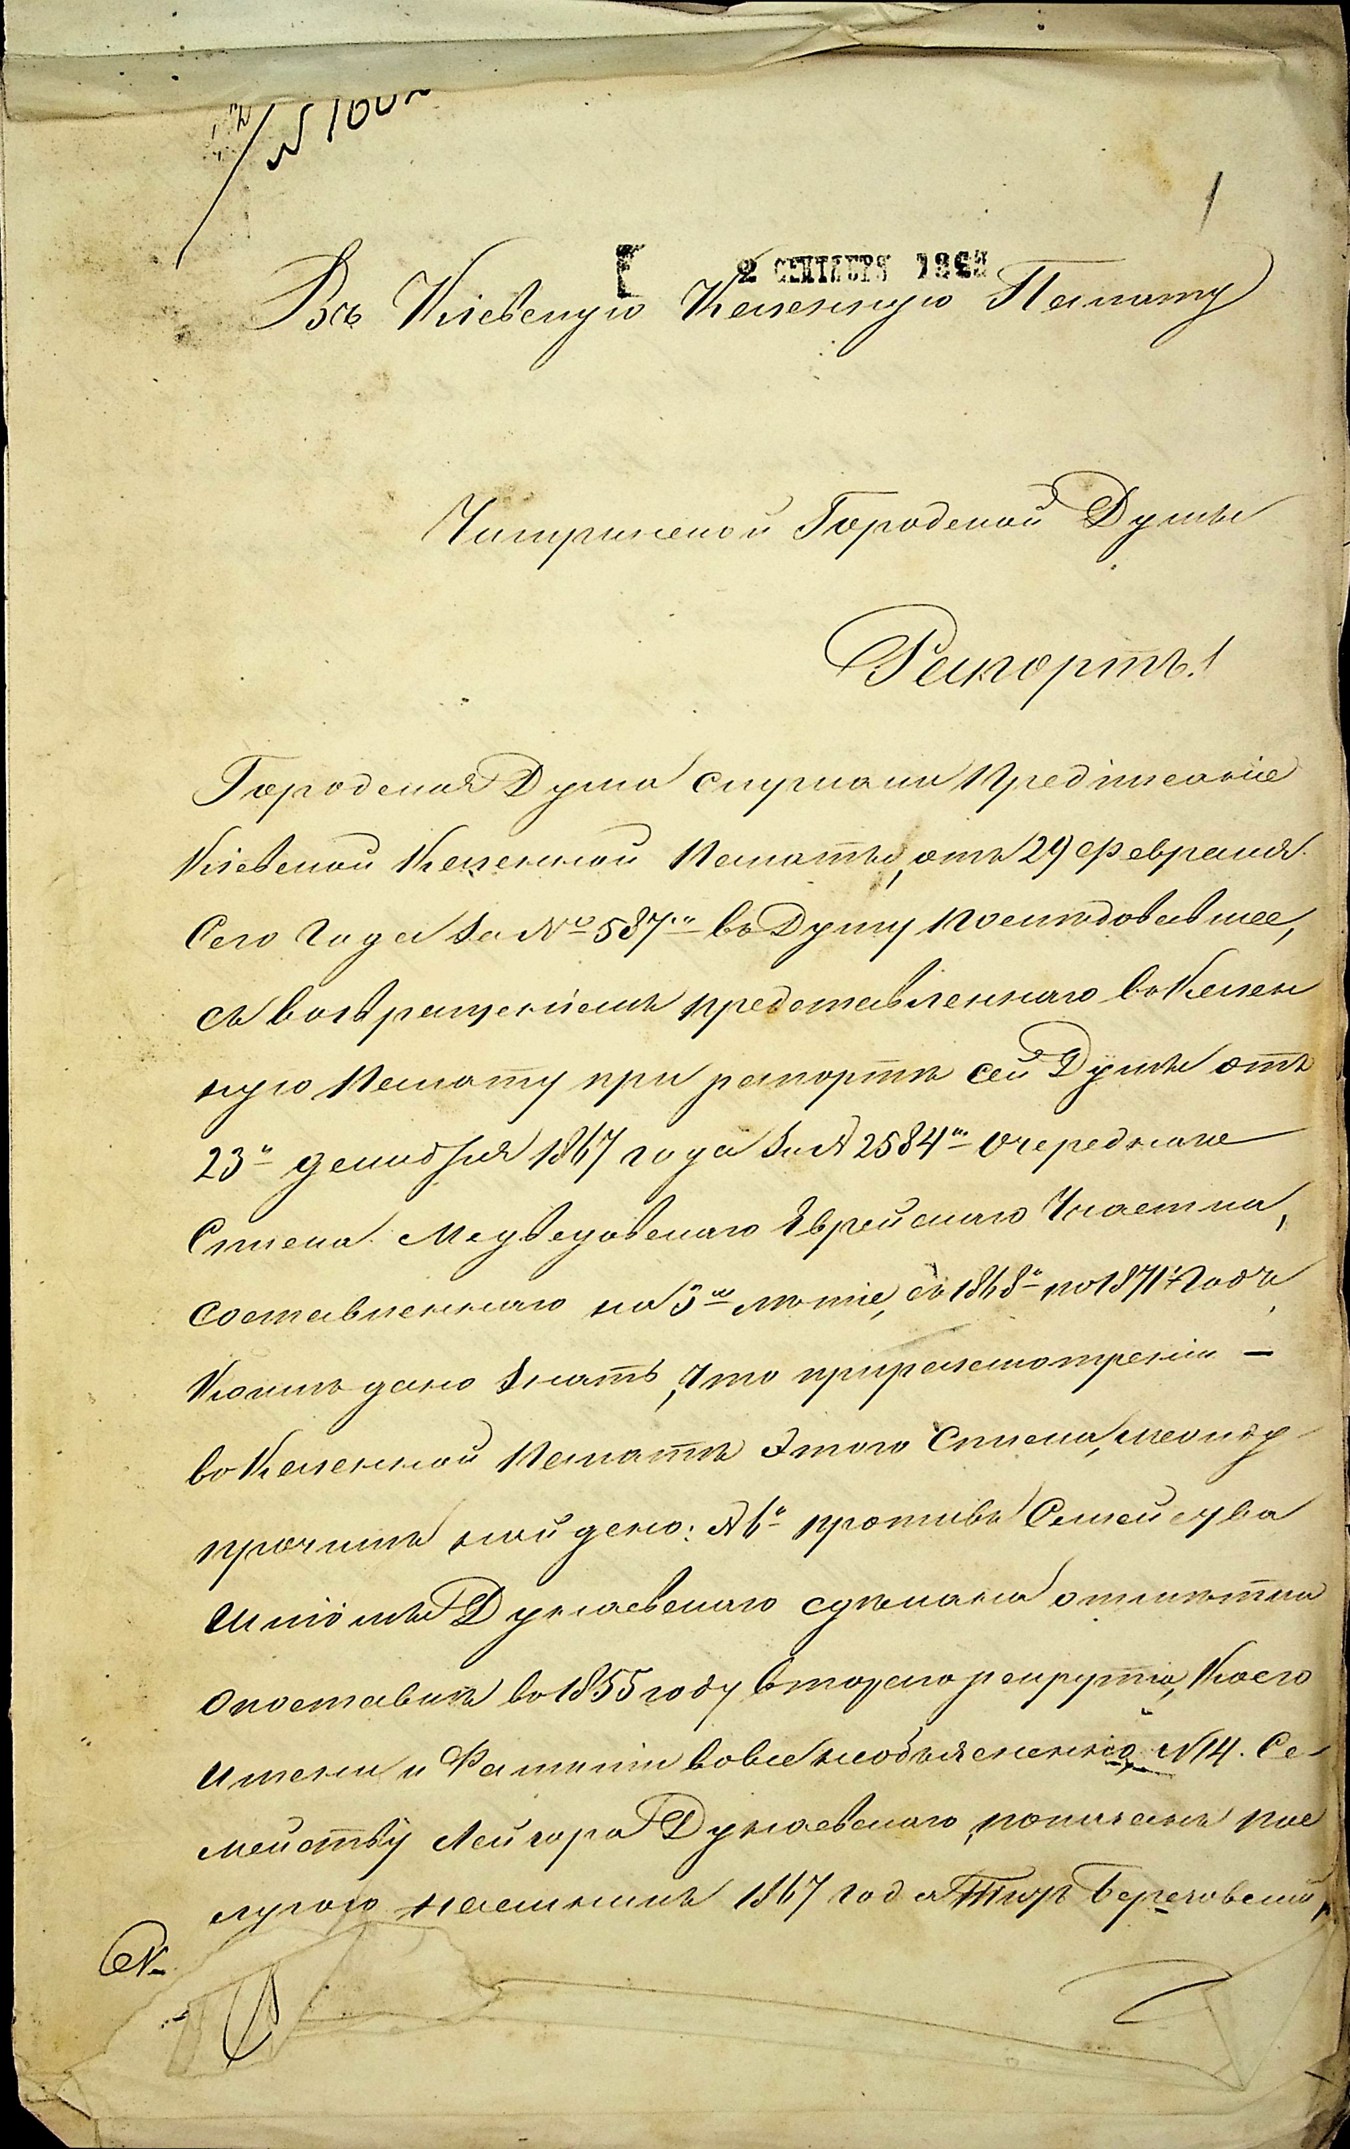 2 СЕНТЯБРЯ 1868
1
Въ Кіевскую Казенную Палату
Чигиринской Городской Думы
Рапортъ!
Городская Дума слушали предписаніе
Кіевской Казенной Палаты, отъ 29 февраля
сего года за № 587м въ Думу последовавшее,
съ возвращеніемъ представленнаго въ Казен
ную Палату при рапортѣ сей Думы отъ
23го декабря 1867 года за № 2584м очереднаго
Списка Медведовскаго Еврейскаго Участка,
составленнаго на 3х лѣтіе, съ 1868го по 1871й годъ,
коимъ дано знать, что при разсмотреніи –
въ Казенной Палатѣ этого списка, между
прочимъ найдено: № 6й противъ Семейства
Шліомы Дунаевскаго сдѣлана отмѣтка
о поставкѣ въ 1855 году втораго рекрута, коего
имени и Фамиліи вовсе необъяснено, № 14. Се-
мейству Лейзора Дунаевскаго, показанъ пос
лугою наемникъ 1867 года Береговскій,